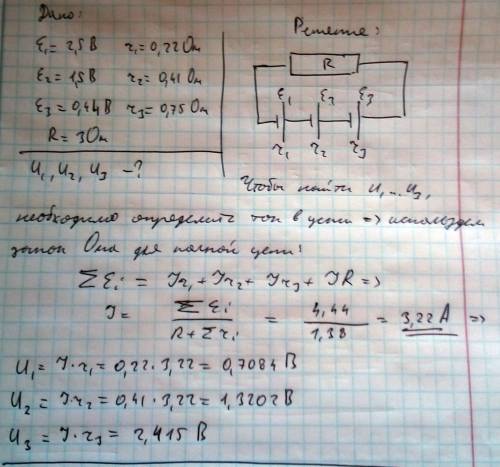 Дано:
ℰ₁ = 2,5 В r₁ = 0,22 Ом
ℰ₂ = 1,5 В r₂ = 0,41 Ом
ℰ₃ = 0,44 В r₃ = 0,75 Ом
R = 3 Ом
U₁, U₂, U₃ – ?
Решение:
R
ℰ₁ ℰ₂ ℰ₃
r₁ r₂ r₃
Чтобы найти U₁...U₃,
необходимо определить ток в цепи => используем
закон Ома для полной цепи:
∑ℰi = Ir₁ + Ir₂ + Ir₃ + IR =>
I = ∑ℰi / (R + ∑ri) = 4,44 / 1,38 = 3,22 А =>
U₁ = I · r₁ = 0,22 · 3,22 = 0,7084 В
U₂ = I · r₂ = 0,41 · 3,22 = 1,3202 В
U₃ = I · r₃ = 2,415 В